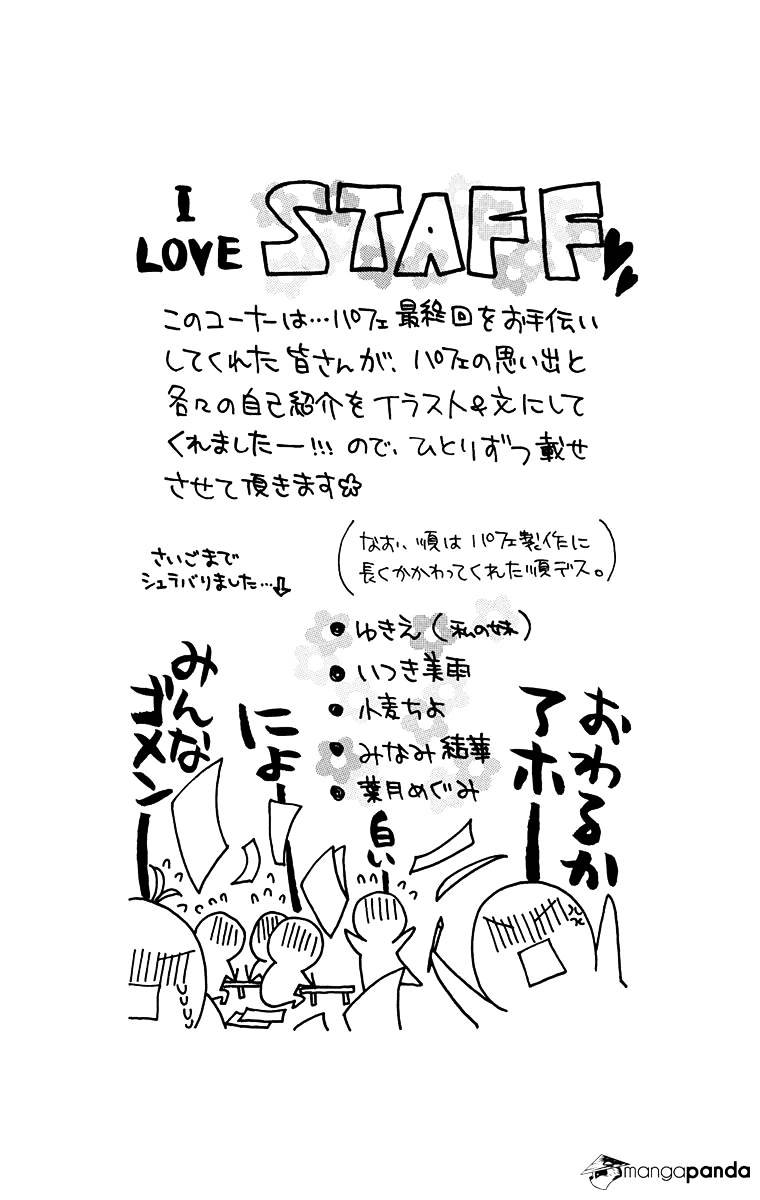 I
LOVE STAFF
このコーナーは…パフェ最終回をお手伝い
してくれた皆さんが、パフェの思い出と
各々の自己紹介をイラスト&文にして
くれましたー!!! ので、ひとりずつ載せ
させて頂きます☆
(なお、順はパフェ製作に
長くかかわってくれた順デス。)
さいごまで
シュラバりました…⇩
● ゆきえ(私の妹)
● いつき美雨
● 小麦ちよ
● みなみ結華
● 葉月めぐみ
おわるか
アホー
白いー
によーー
みんな
ゴメンー
mangapanda